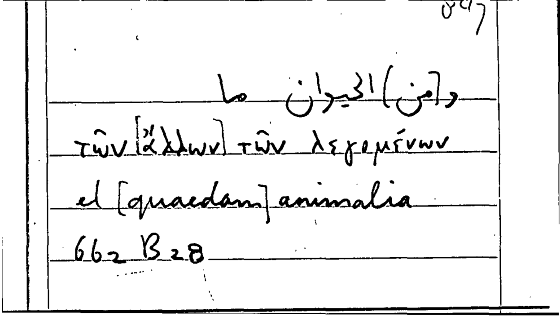 و(من) الحيوان ما
τῶν [ἄλλων] τῶν λεγομένων
el [quaedam] animalia
662 B 28